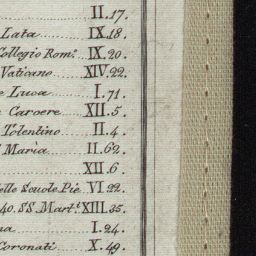 II.17.
Lata IX.18.
Collegio Rom.º IX.20.
Vaticano XIV.22.
e Luca I.71.
Carcere XII.5.
Tolentino II.4.
Maria II.62.
XII.6.
elle Scuole Pie VI.22.
40. SS. Mart.i XIII.35.
na I.24.
Coronati X.49.